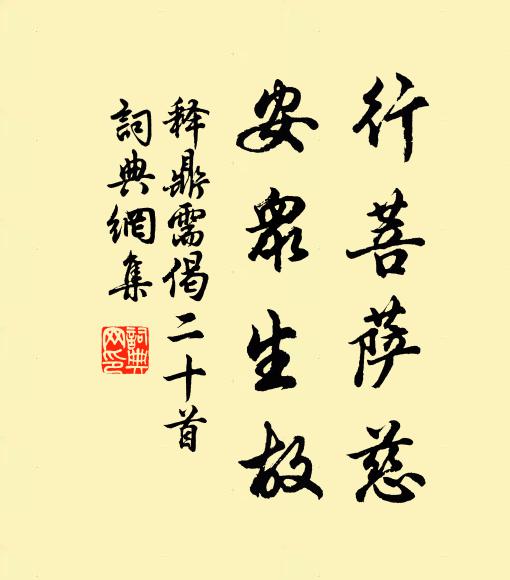 行菩薩慈
安眾生故
释鼎需偈二十首
詞典網集
詞典網印